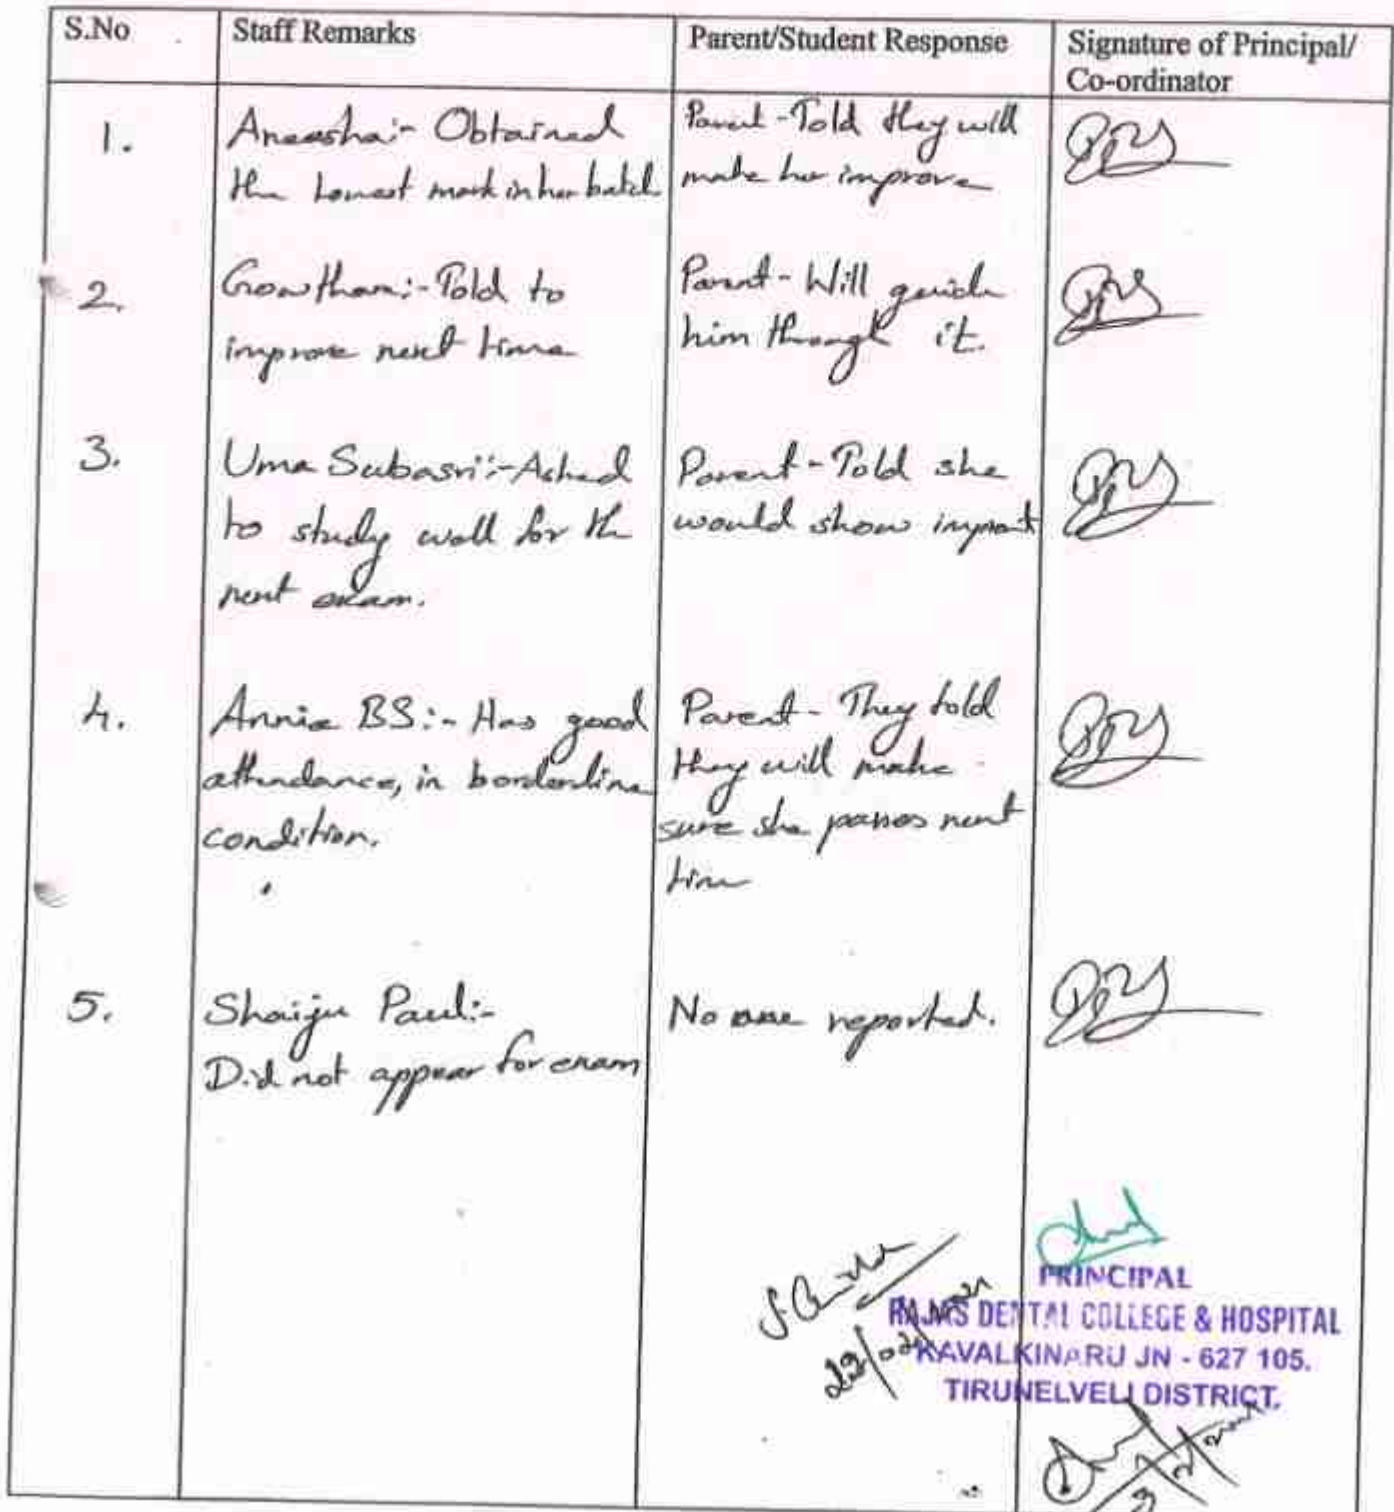 S.No Staff Remarks Parent/Student Response Signature of Principal/
Co-ordinator
1. Aneesha:- Obtained
the lowest mark in her batch
Parent - Told they will
make her improve
2. Gowtham:- Told to
improve next time
Parent - Will guide
him through it.
3. Uma Subasri:- Asked
to study well for the
next exam.
Parent - Told she
would show
4. Annie BS:- Has good
attendance, in borderline
condition.
Parent - They told
they will make
sure she passes next
time
5. Shaiju Paul:-
Did not appear for exam
No one reported.
PRINCIPAL
RAJAS DENTAL COLLEGE & HOSPITAL
KAVALKINARU JN - 627 105.
TIRUNELVELI DISTRICT.